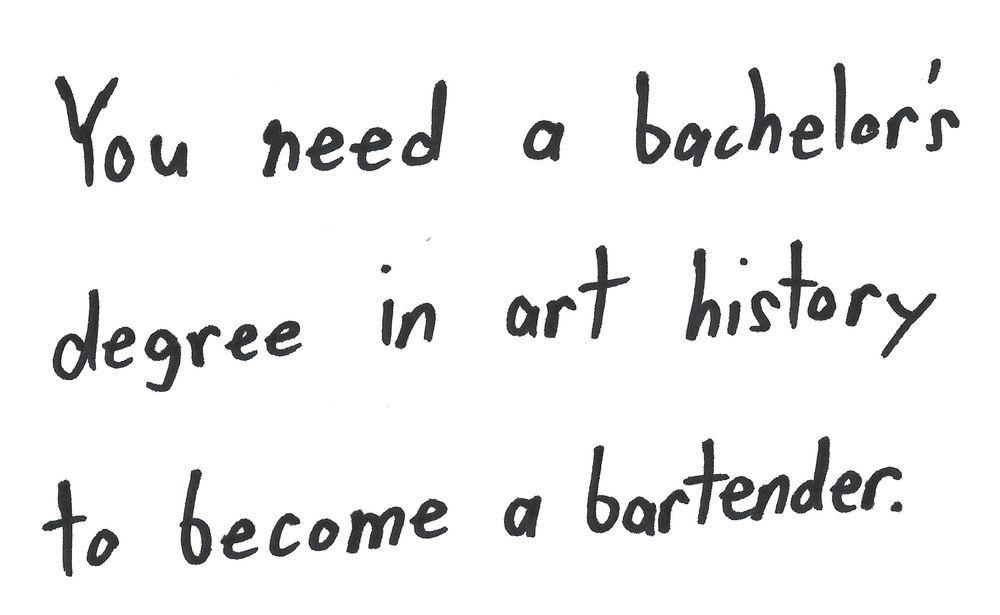 You need a bachelor's
degree in art history
to become a bartender.